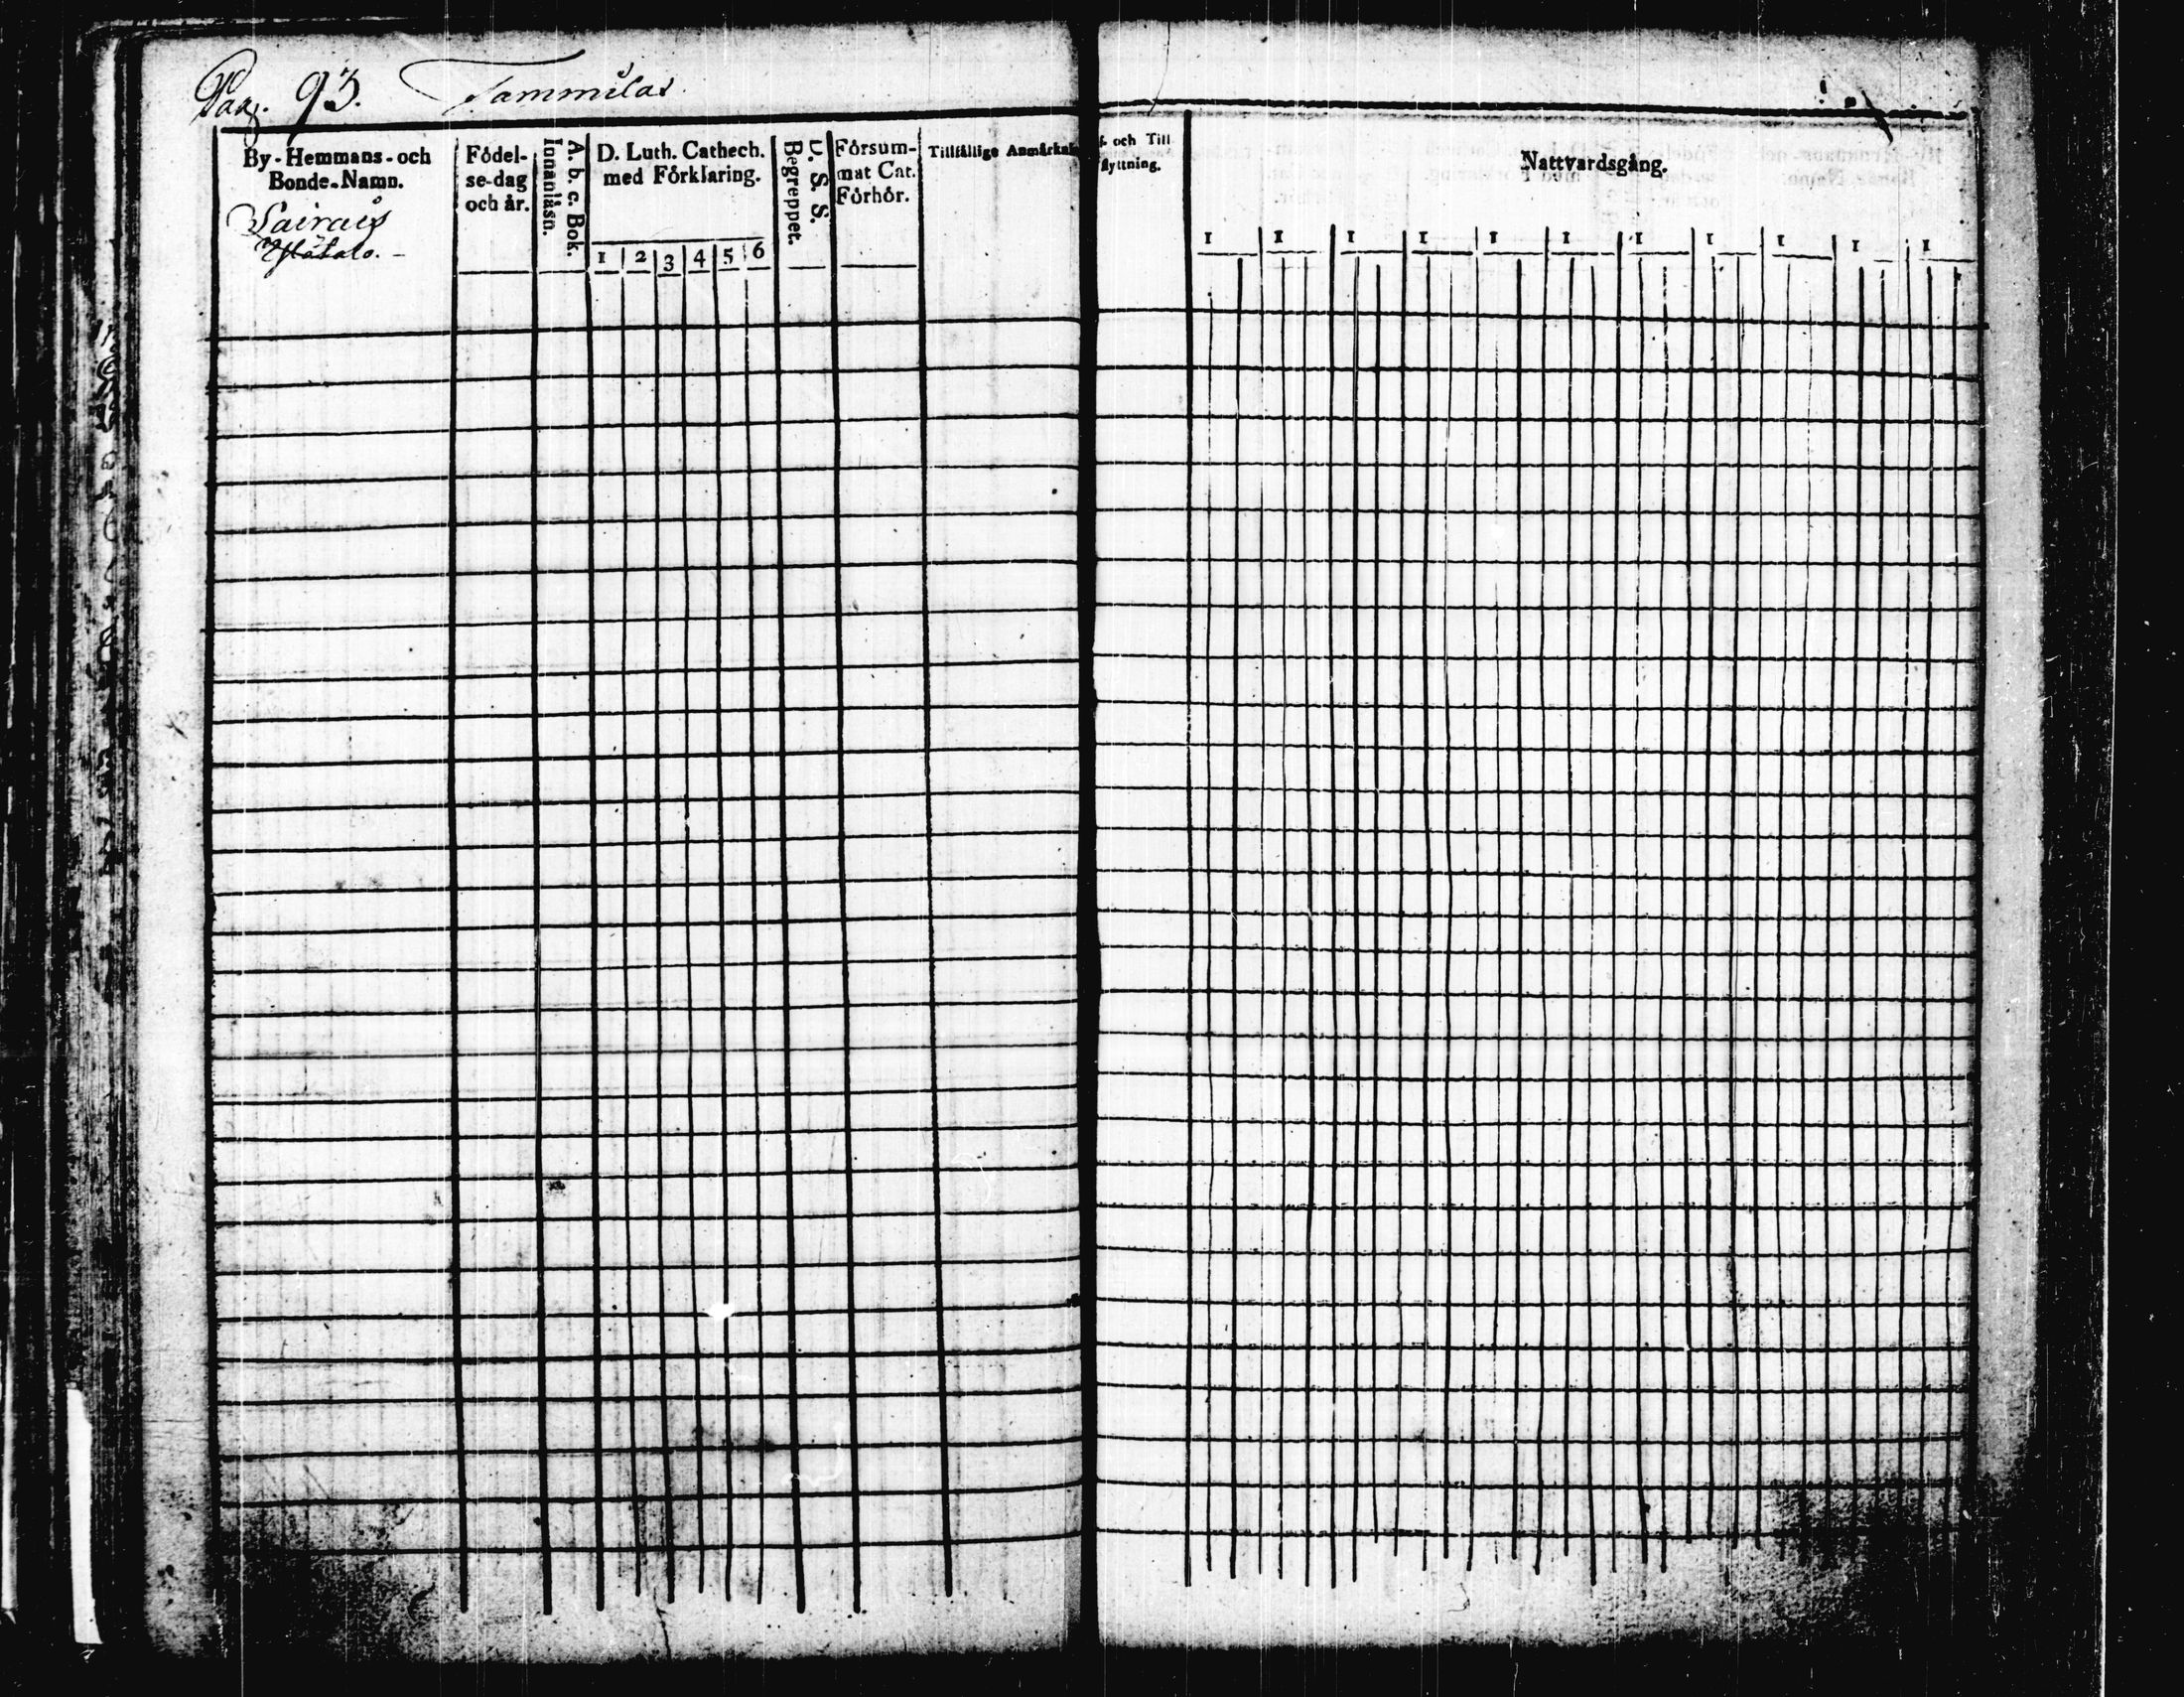 Pag. 93. Tammilas
By-Hemmans-och
Bonde-Namn.
Födel-
se-dag
och år.
A. b. c. Bok.
Innanläsn.
D. Luth. Cathech.
med Förklaring.
1 2 3 4 5 6
Begreppet.
D. S. S.
Försum-
mat Cat.
Förhör.
Tillfällige Anmärkn
f. och Till
flyttning.
Nattvardsgång.
1 1 1 1 1 1 1 1 1 1 1